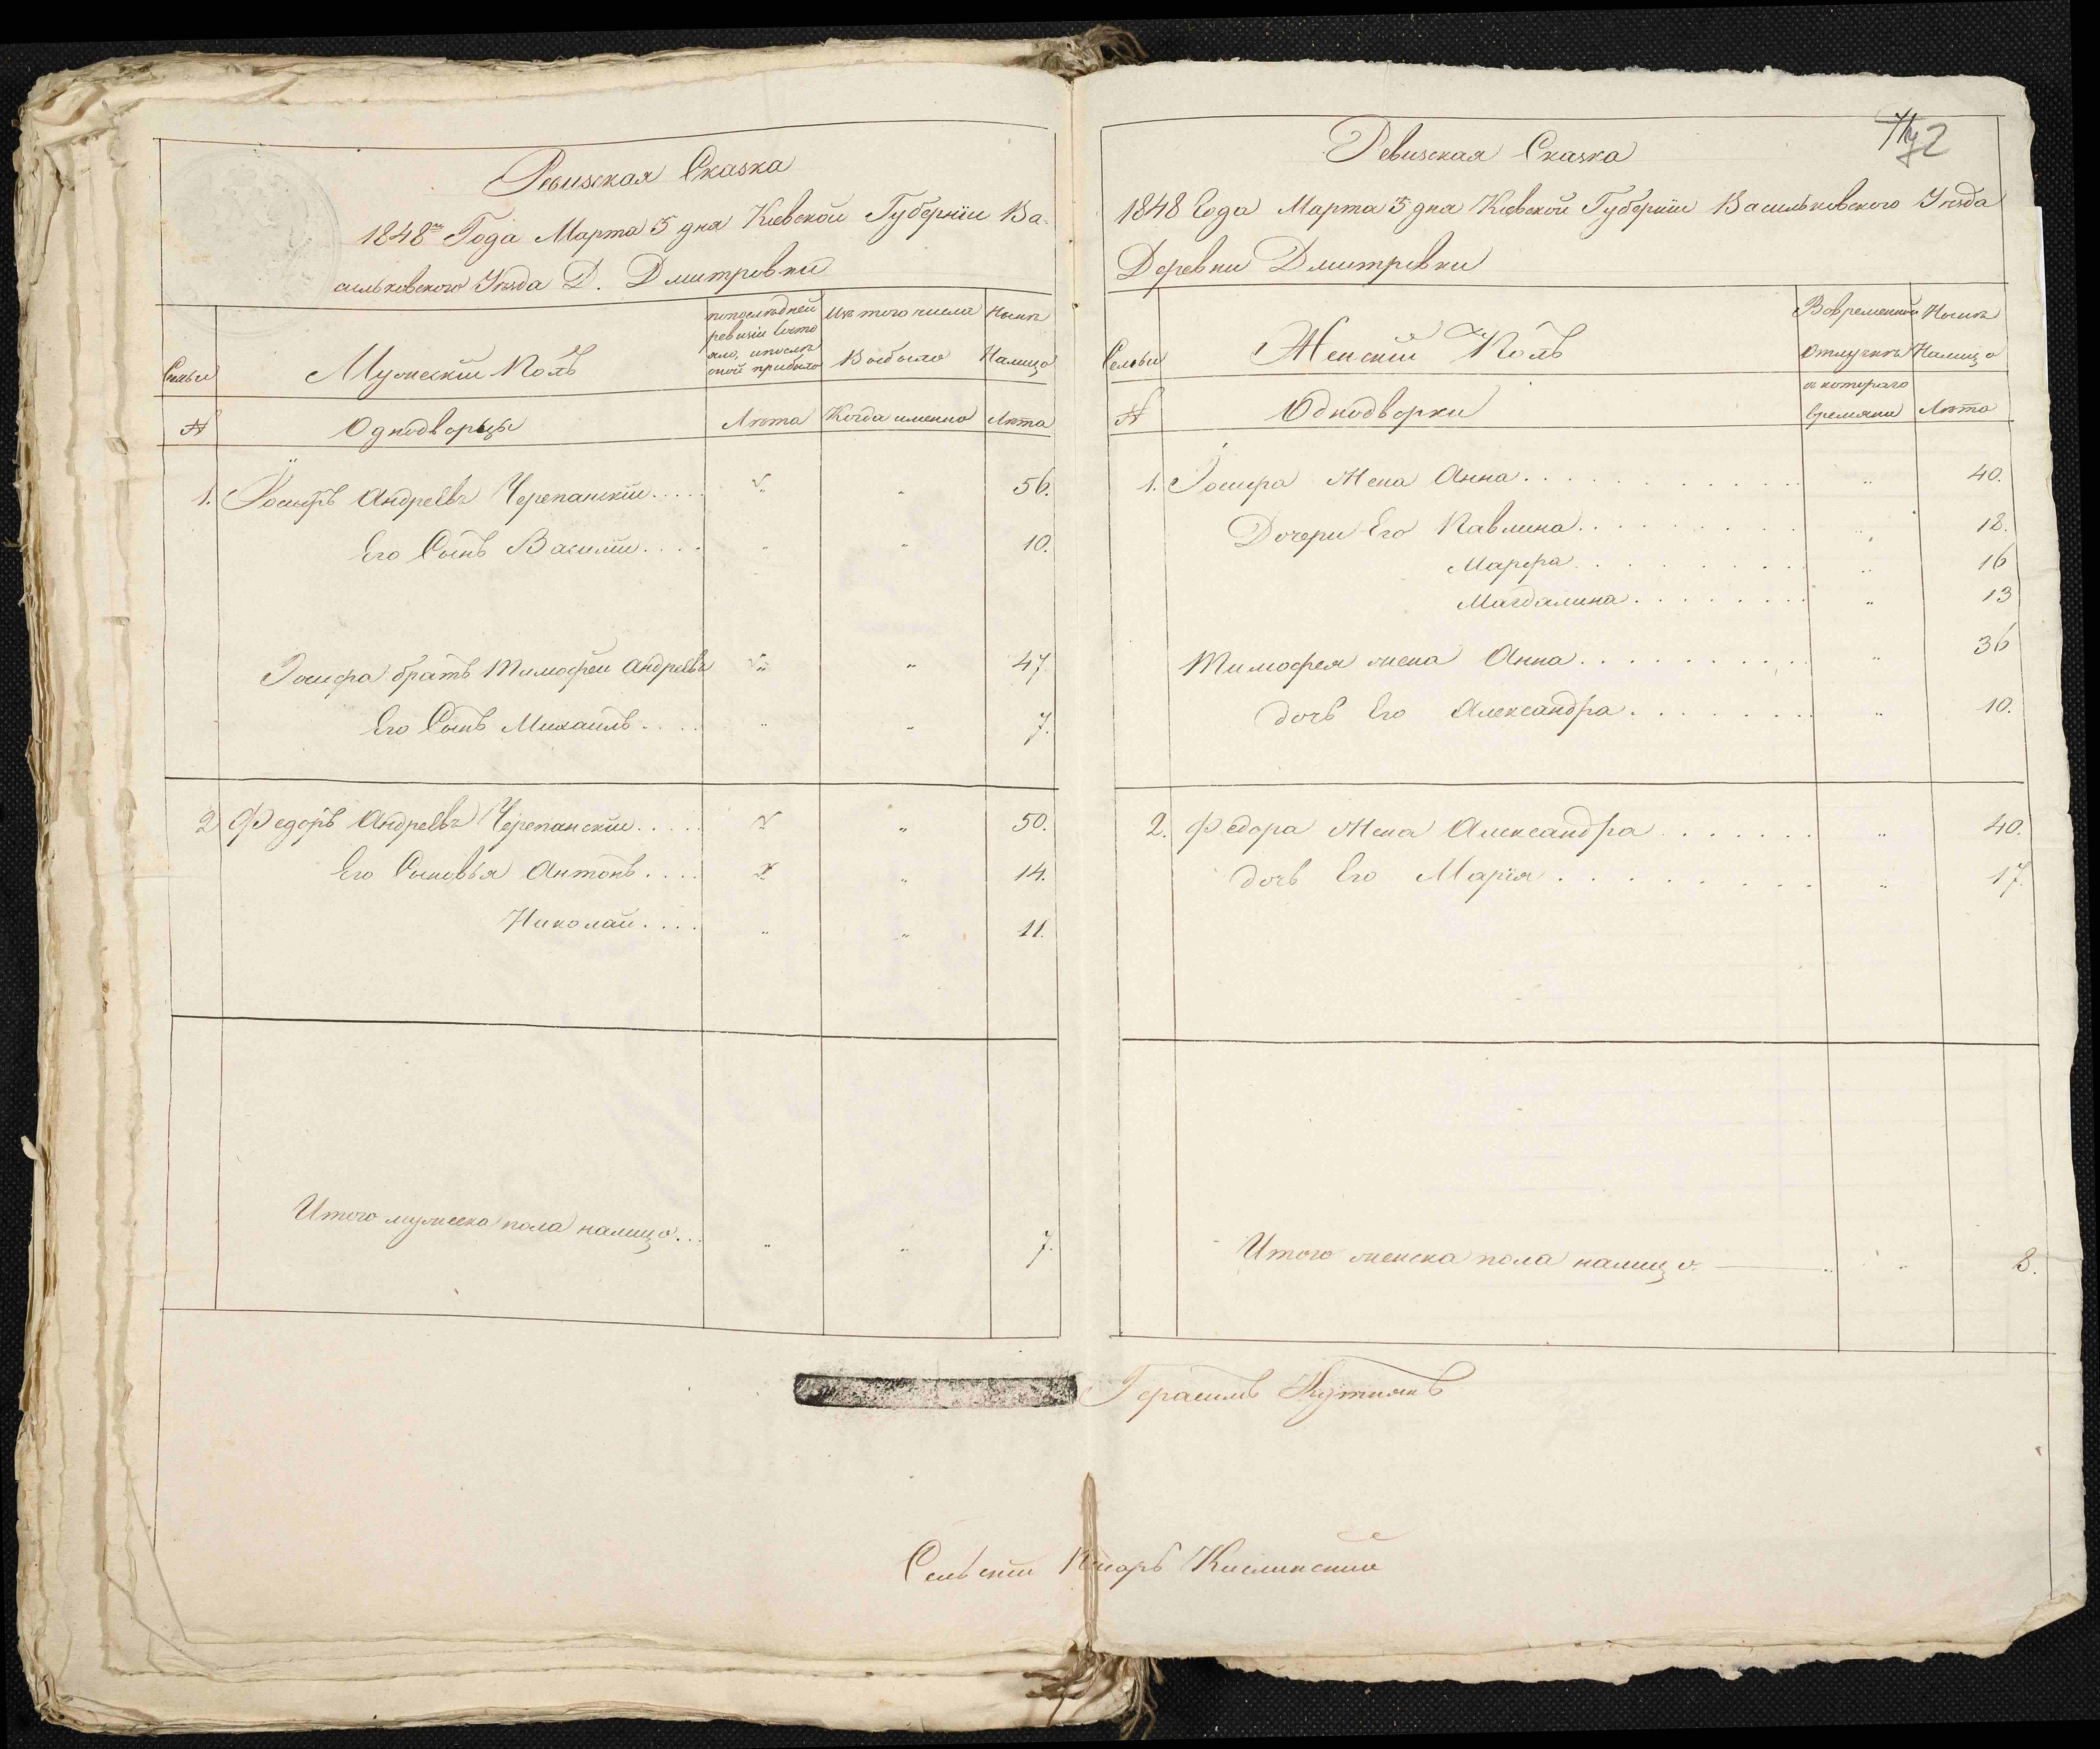 Ревизская Сказка
1848го Года Марта 5 дня Кіевской Губерніи Ва-
сильковского Уезда Д. Дмитровки
Семьи
Мужескій Полъ
по последней
ревизіи состо
яло, и после
оной прибыло
Изъ того числа
Выбыло
Ныне
Налицо
№
Однодворцы
Лета
Когда именно
Лета
1. Іосифъ Андреевъ Черепанскій..... " " 56.
Его Сынъ Василій.... " " 10.
Іосифа братъ Тимофей Андреевъ " " 47.
Его Сынъ Михаилъ.... " " 7.
2 Федоръ Андреевъ Черепанскій..... " 50.
Его Сыновья Антонъ.... " 14.
Николай.... " " 11.
Итого мужеска пола налицо... " " 7.
Ревизская Сказка
2
1848 Года Марта 5 дня Кіевской Губерніи Васильковского Уезда
Деревни Дмитровки
Семьи
Женскій Полъ
Во временной
отлучке
Ныне
Налицо
№
Однодворки
съ котораго
времяни
Лета
1. Іосифа Жена Анна............. " 40.
Дочери Его Павлина.......... " 18.
Марфа.......... " 16
Магдалина........ " 13
Тимофея жена Анна.......... " 36
дочь Его Александра........ " 10.
2. Федора Жена Александра....... " 40.
дочь Его Марія.......... " 17.
Итого женска пола налицо. " " 8.
Герасимъ
Сельскій Писарь